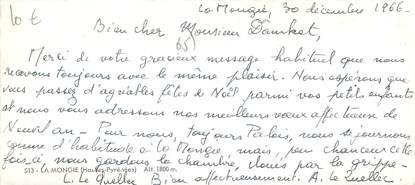 10 €
La Mongie, 30 décembre 1966-
Bien cher Monsieur
65
Merci de votre gracieux message habituel que nous
recevons toujours avec le même plaisir. Nous espérons que
vous passez d'agréables fêtes de Noël parmi vos petits enfants
et nous vous adressons nos meilleurs vœux affectueux de
Nouvel an - Pour nous, toujours Palois, nous séjournons
comme d'habitude à La Mongie, mais, peu chanceux cette
fois-ci, nous gardons la chambre, cloués par la grippe -
513 - LA MONGIE (Hautes-Pyrénées) Alt. 1800 m.
Bien affectueusement. A.